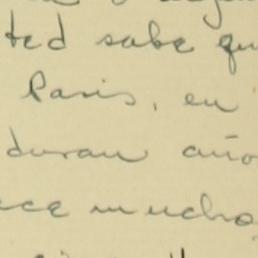 ted sabe qu
Paris, en
duran año
ece mucho